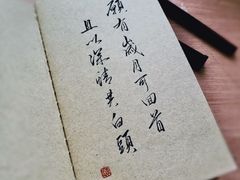 願有歲月可回首
且以深情共白頭